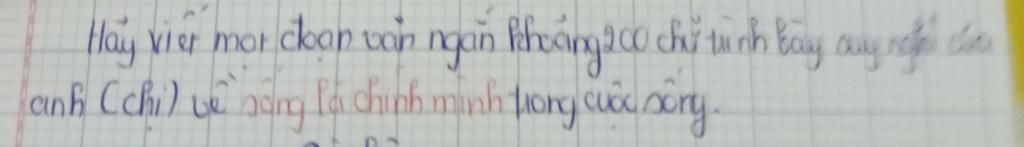 Hãy viết một đoạn văn ngắn khoảng 200 chữ trình bày suy nghĩ của
anh (chị) về sống là chính mình trong cuộc sống.